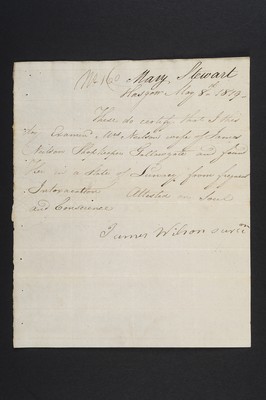 Mary Stewart
Glasgow May 8th 1829
These do certify that I this
day Examined Mrs Neilson wife of James
Neilson Shopkeeper Gallowgate and found
Her in a state of Lunacy from frequent
Intoxication Attested on Soul
and Conscience
James Wilson surgn